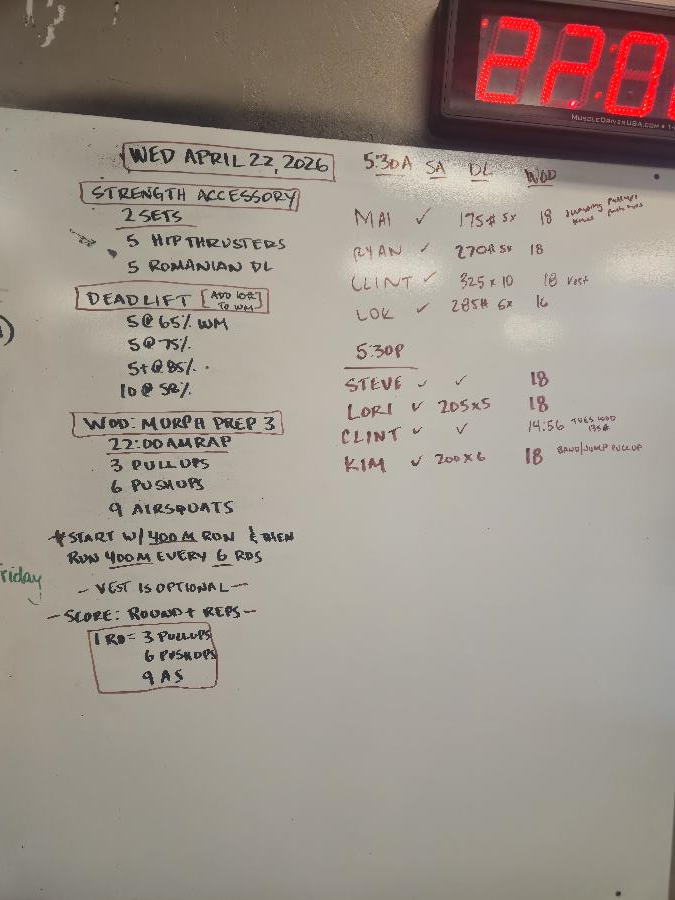 22:0
MUSCLEDRIVERUSA.COM
WED APRIL 22, 2026
STRENGTH ACCESSORY
2 SETS
5 HIP THRUSTERS
5 ROMANIAN DL
DEADLIFT [ADD 10# TO WM]
5@65% WM
5@75%
5+@85%
10@50%
WOD: MURPH PREP 3
22:00 AMRAP
3 PULLUPS
6 PUSHUPS
9 AIRSQUATS
*START W/ 400M RUN & THEN
RUN 400M EVERY 6 RDS
- VEST IS OPTIONAL -
- SCORE: ROUND + REPS -
1 RD = 3 PULLUPS
6 PUSHUPS
9 AS
riday
5:30A SA DL WOD
MAI ✓ 175# 5x 18 Jumping Pullups
RYAN ✓ 270# 5x 18
CLINT ✓ 325 x 10 18 Vest
LOK ✓ 285# 6x 16
5:30P
STEVE ✓ ✓ 18
LORI ✓ 205x5 18
CLINT ✓ ✓ 14:56 TUES WOD 135#
KIM ✓ 200x6 18 BAND/JUMP PULLUP